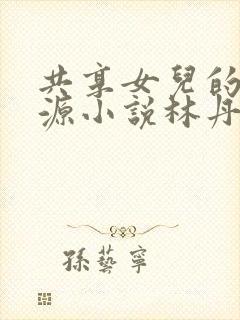 共享女兒的
源小說林丹
孫藝寧